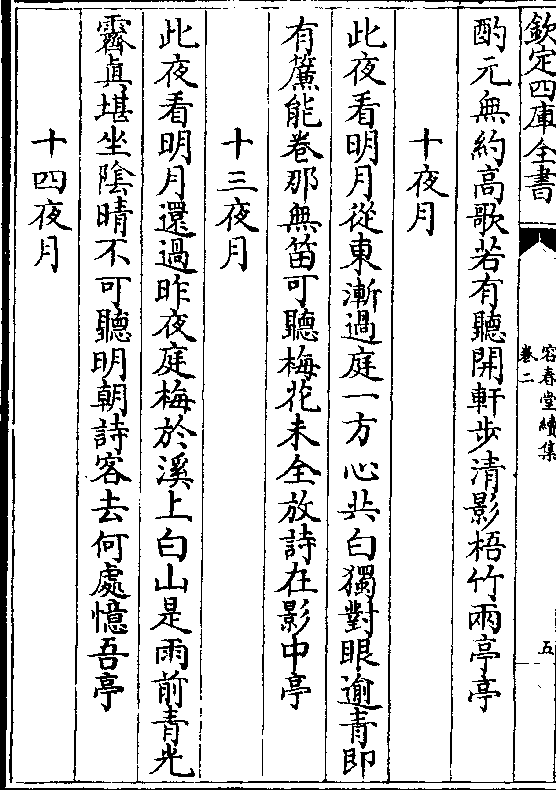 欽定四庫全書
容春堂續集
卷二
五
酌元無約高歌若有聽開軒步清影梧竹兩亭亭
十夜月
此夜看明月從東漸過庭一方心共白獨對眼逾青即
有簾能卷那無笛可聽梅花未全放詩在影中亭
十三夜月
此夜看明月還過昨夜庭梅於溪上白山是雨前青光
霽真堪坐陰晴不可聽明朝詩客去何處憶吾亭
十四夜月